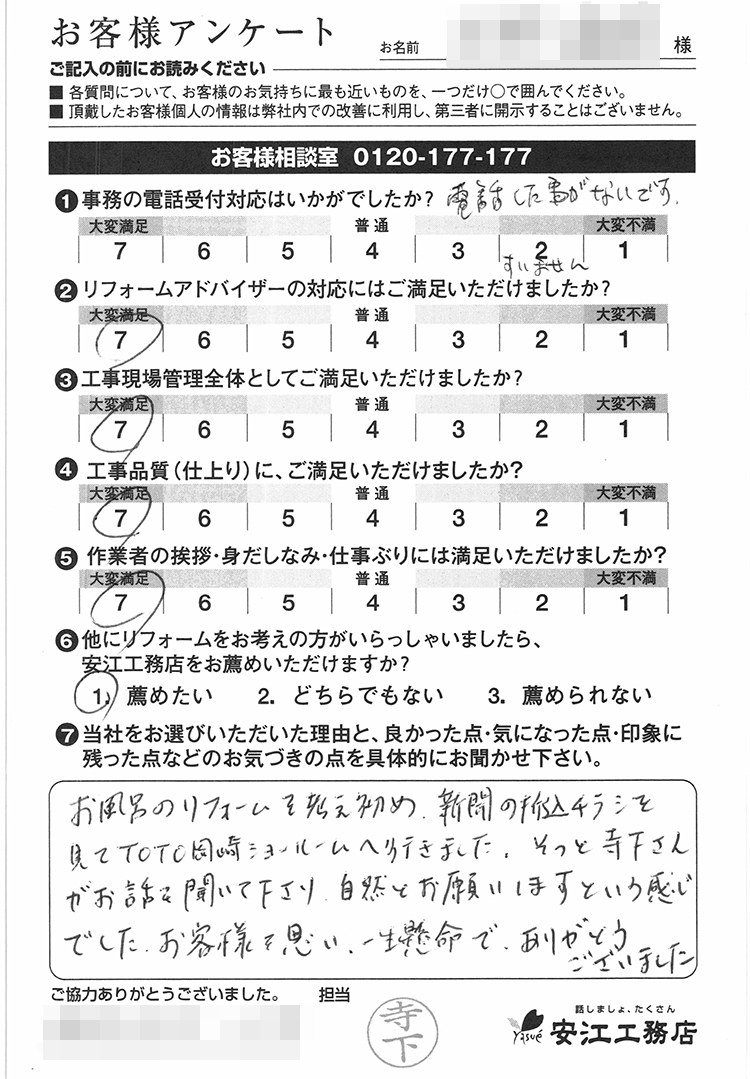 お客様アンケート
お名前 様
ご記入の前にお読みください
■ 各質問について、お客様のお気持ちに最も近いものを、一つだけ○で囲んでください。
■ 頂戴したお客様個人の情報は弊社内での改善に利用し、第三者に開示することはございません。
お客様相談室 0120-177-177
❶ 事務の電話受付対応はいかがでしたか? 電話した事がないです.
大変満足 普通 大変不満
7 6 5 4 3 2 1
すいません
❷ リフォームアドバイザーの対応にはご満足いただけましたか?
大変満足 普通 大変不満
7 6 5 4 3 2 1
❸ 工事現場管理全体としてご満足いただけましたか?
大変満足 普通 大変不満
7 6 5 4 3 2 1
❹ 工事品質(仕上り)に、ご満足いただけましたか?
大変満足 普通 大変不満
7 6 5 4 3 2 1
❺ 作業者の挨拶・身だしなみ・仕事ぶりには満足いただけましたか?
大変満足 普通 大変不満
7 6 5 4 3 2 1
❻ 他にリフォームをお考えの方がいらっしゃいましたら、
安江工務店をお薦めいただけますか?
1. 薦めたい 2. どちらでもない 3. 薦められない
❼ 当社をお選びいただいた理由と、良かった点・気になった点・印象に
残った点などのお気づきの点を具体的にお聞かせ下さい。
お風呂のリフォームを考え初め、新聞の折込チラシを
見てTOTO岡崎ショールームへ行きました。そっと寺下さん
がお話を聞いて下さり、自然とお願いしますという感じ
でした。お客様を思い、一生懸命で、ありがとう
ございました
ご協力ありがとうございました。 担当
寺下
話しましょ、たくさん
Yasué 安江工務店